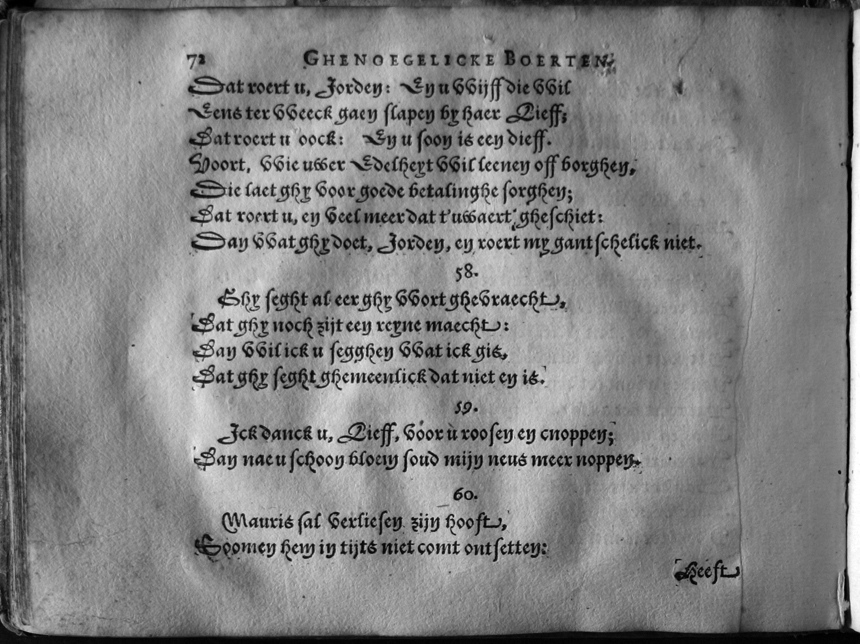 72 GHENOEGELICKE BOERTEN.
Dat roert u, Jorden: En u wijff die wil
Eens ter weeck gaen slapen by haer Lieff;
Dat roert u oock: En u soon is een dieff.
Voort, wie uwer Edelheyt wil leenen off borghen,
Die laet ghy voor goede betalinghe sorghen;
Dat roert u, en veel meer dat t'uwaert gheschiet:
Dan wat ghy doet, Jorden, en roert my gantschelick niet.
58.
Ghy seght al eer ghy wort ghevraecht,
Dat ghy noch zijt een reyne maecht:
Dan wil ick u segghen wat ick gis,
Dat ghy seght ghemeenlick dat niet en is.
59.
Ick danck u, Lieff, voor ù roosen en cnoppen;
Dan nae u schoon bloem soud mijn neus meer noppen.
60.
Mauris sal verliesen zijn hooft,
Soomen hem in tijts niet comt ontsetten:
Heeft